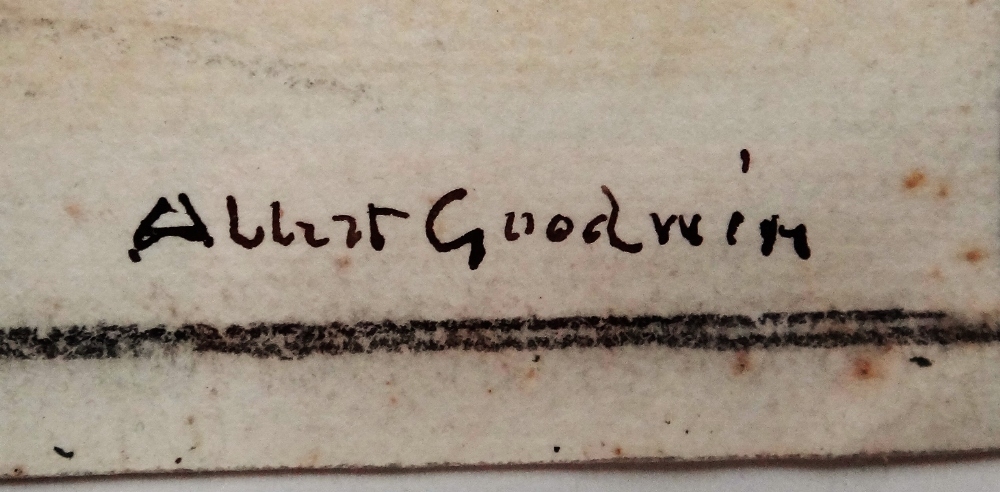 Albert Goodwin